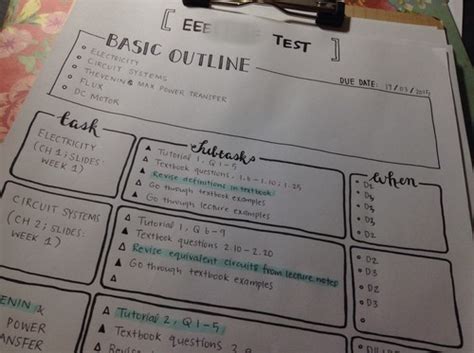 [ EEE TEST ]
BASIC OUTLINE
DUE DATE: 19/03/2015
ELECTRICITY
CIRCUIT SYSTEMS
THEVENIN & MAX POWER TRANSFER
FLUX
DC MOTOR
task
Subtasks
when
ELECTRICITY
(CH 1; SLIDES:
WEEK 1)
Tutorial 1, Q 1-5
Textbook questions, 1.6-1.10; 1.25
Revise definitions in textbook
Go through textbook examples
Go through lecture examples
D1
D2
CIRCUIT SYSTEMS
(CH 2; SLIDES:
WEEK 1)
Tutorial 1, Q 6-9
Textbook questions 2.10-2.20
Revise equivalent circuits from lecture notes
Go through textbook examples
D2
D2
D3
& 
POWER
TRANSFER
Tutorial 2, Q1-5
Textbook questions
Revise